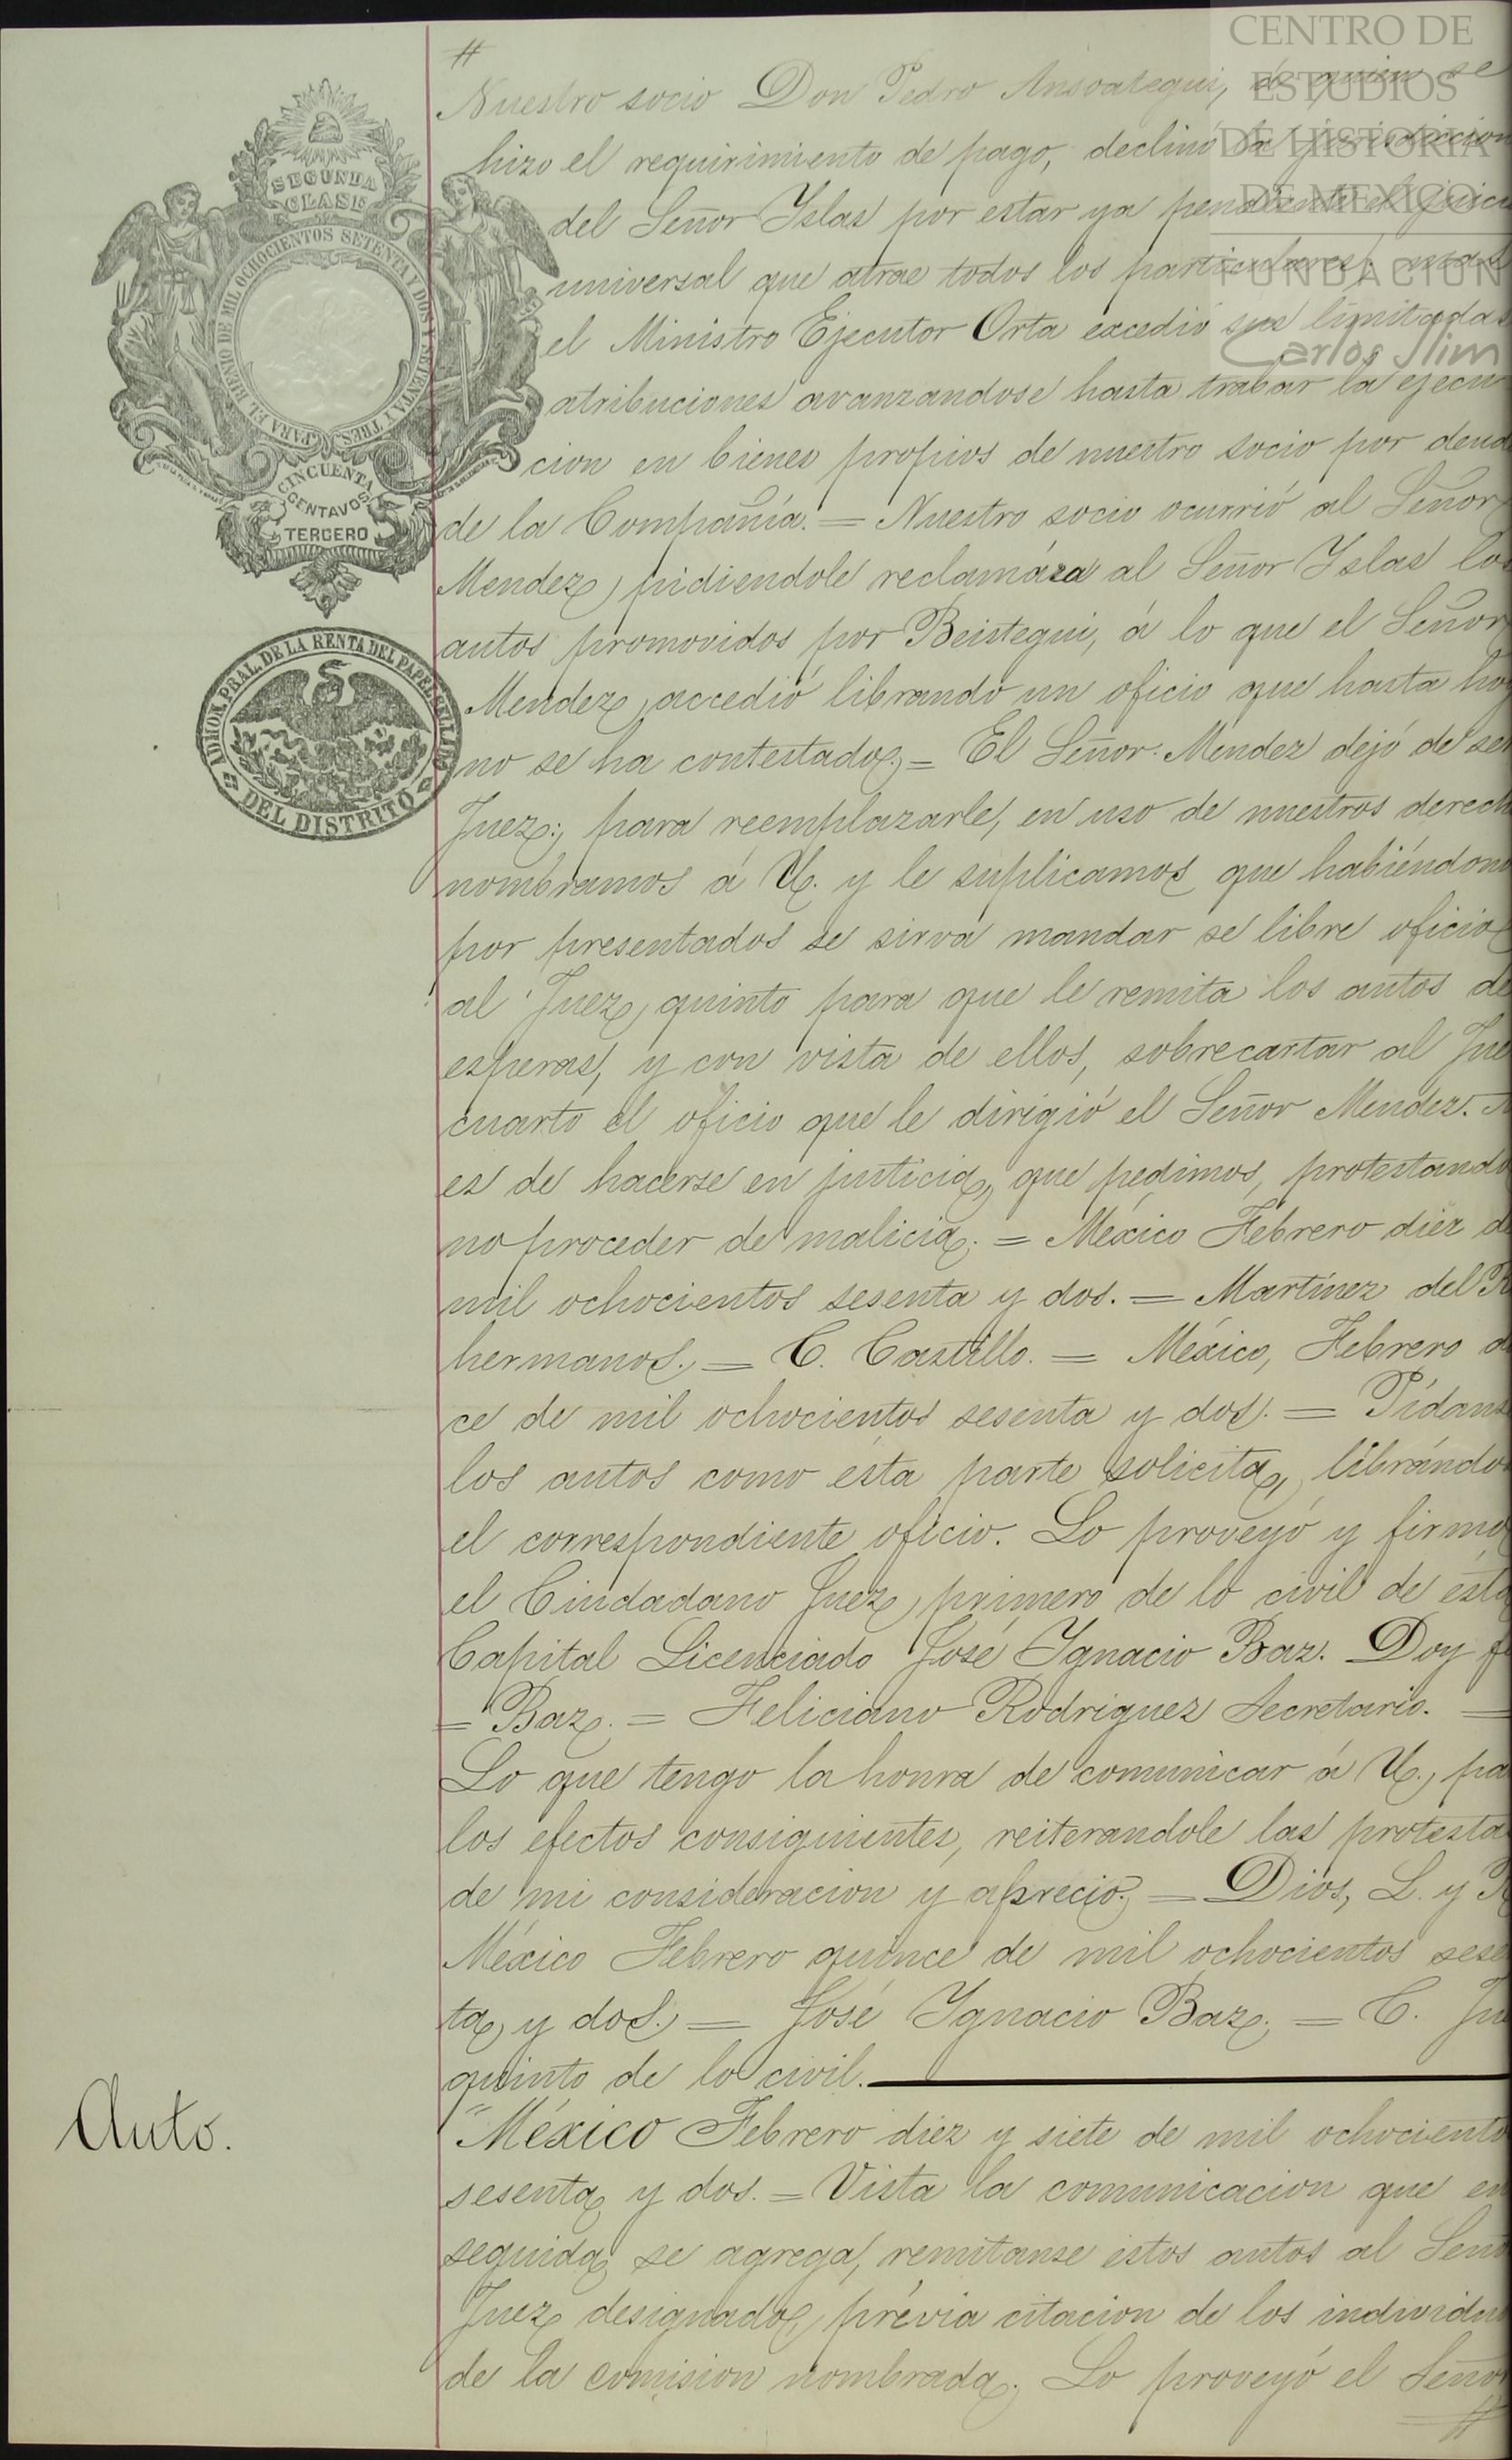 CENTRO DE
ESTUDIOS
DE HISTORIA
DE MEXICO
FUNDACION
Carlos Slim
#
Nuestro socio Don Pedro Ansoategui, de quien se
hizo el requirimiento de pago, declinó la jurisdiccion
del Señor Yslas por estar ya pendiente el juici
universal que atrae todos los particulares; mas
el Ministro Ejecutor Orta excedió sus limitadas
atribuciones avanzandose hasta trabar la ejecu
cion en bienes propios de nuestro socio por deud
de la Compañía. = Nuestro socio ocurrió al Señor
Mendez, pidiendole reclamára al Señor Yslas los
autos promovidos por Beistegui, á lo que el Señor
Mendez, accedió librando un oficio que hasta hoy
no se ha contestado. = El Señor Mendez dejó de ser
Juez; para reemplazarle, en uso de nuestros derech
nombramos á U. y le suplicamos que habiéndono
por presentados se sirva mandar se libre oficio
al Juez quinto para que le remita los autos de
esperas, y con vista de ellos, sobrecartar al Jue
cuarto el oficio que le dirigió el Señor Mendez.
es de hacerse en justicia, que pedimos, protestando
no proceder de malicia. = México Febrero diez d
mil ochocientos sesenta y dos. = Martínez del R
hermanos. = C. Castillo. = México, Febrero d
ce de mil ochocientos sesenta y dos. = Pídans
los autos como ésta parte solicita, librándo
el correspondiente oficio. Lo proveyó y firmó
el Ciudadano Juez, primero de lo civil de ésta
Capital Licenciado José Ygnacio Baz. Doy fé
= Baz. = Feliciano Rodriguez Secretario. =
Lo que tengo la honra de comunicar á U., pa
los efectos consiguientes, reiterandole las protesta
de mi consideracion y aprecio. = Dios, L. y R
México Febrero quince de mil ochocientos sese
ta y dos. = José Ygnacio Baz. = C. Jue
quinto de lo civil.
Auto.
"México Febrero diez y siete de mil ochociento
sesenta y dos. = Vista la comunicacion que en
seguida se agrega, remitanse éstos autos al Seño
Juez designado, prévia citacion de los individu
de la comision nombrada. Lo proveyó el Señor
#
SEGUNDA
CLASE
PARA EL BIENIO DE MIL OCHOCIENTOS SETENTA Y DOS Y SETENTA Y TRES
CINCUENTA
CENTAVOS
TERCERO
ADMON. PRAL. DE LA RENTA DEL PAPEL SELLADO
DEL DISTRITO